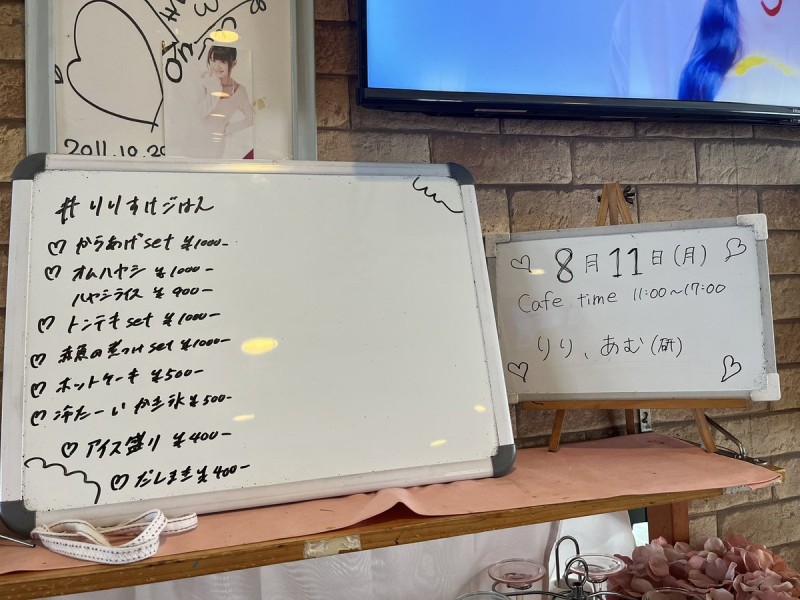 2011.10.29
#りりすけごはん
♡からあげset ¥1000-
♡オムハヤシ ¥1000-
ハヤシライス ¥900-
♡トンテキset ¥1000-
♡赤魚の煮つけset ¥1000-
♡ホットケーキ ¥500-
♡冷たーいかき氷 ¥500-
♡アイス盛り ¥400-
♡だしまき ¥400-
♡8月11日(月)♡
Cafe time 11:00~17:00
りり、あむ(研)